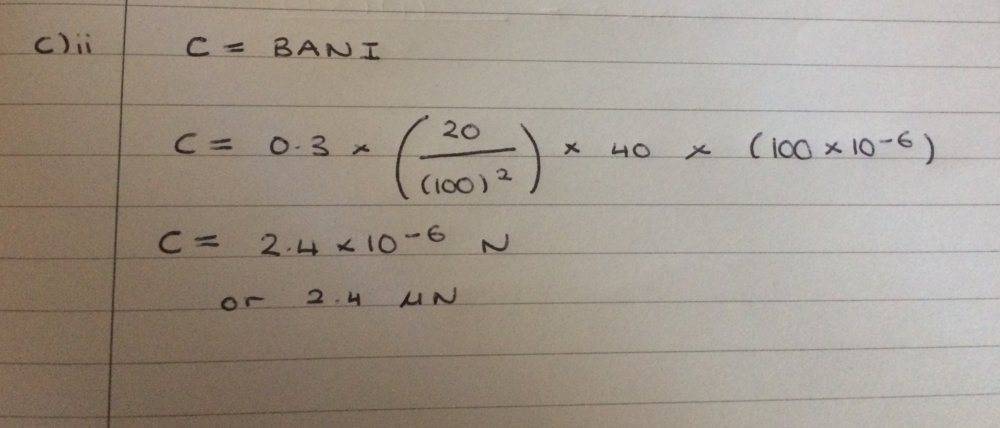 c)ii C = BANI
C = 0.3 × (20/(100)²) × 40 × (100 × 10⁻⁶)
C = 2.4 × 10⁻⁶ N
or 2.4 μN